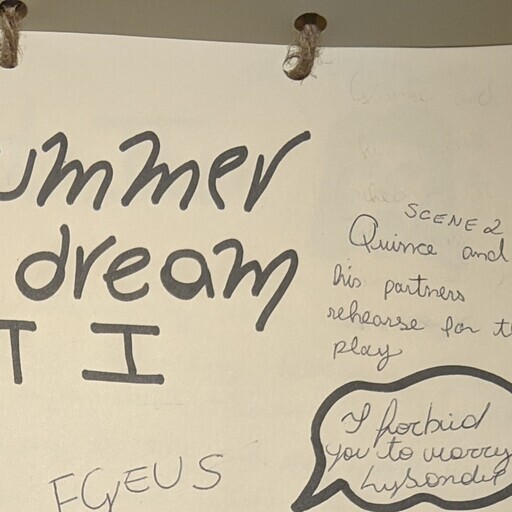 ummer
dream
T I
SCENE 2
Quince and
his partners
rehearse for t
play
I forbid
you to marry
Lysander
EGEUS